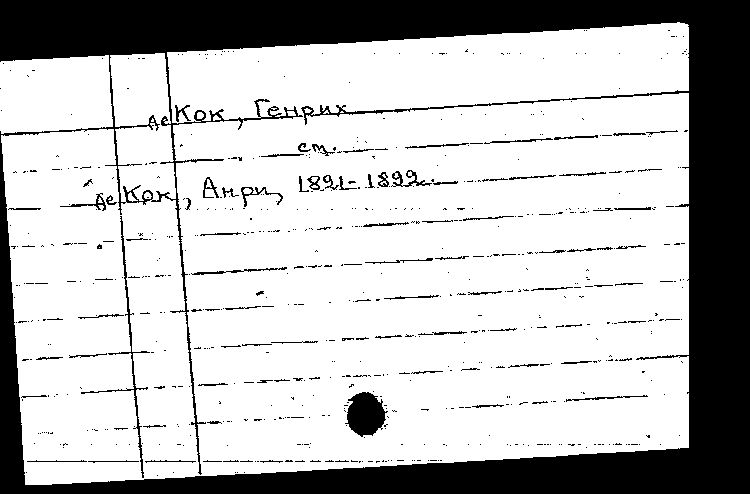 де Кок, Генрих
см.
де Кок, Анри, 1821-1892.